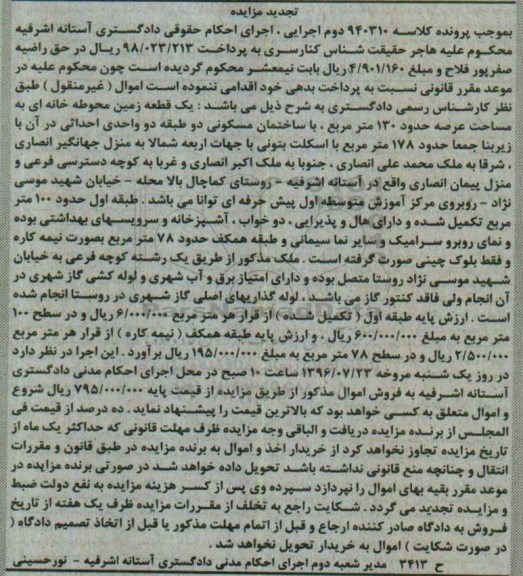 تجدید مزایده
بموجب پرونده کلاسه ۹۴۰۳۱۰ دوم اجرایی ، اجرای احکام حقوقی دادگستری آستانه اشرفیه
محکوم علیه هاجر حقیقت شناس کنارسری به پرداخت ۹۸/۰۲۳/۲۱۳ ریال در حق راضیه
صفرپور فلاح و مبلغ ۴/۹۰۱/۱۶۰ ریال بابت نیمعشر محکوم گردیده است چون محکوم علیه در
موعد مقرر قانونی نسبت به پرداخت بدهی خود اقدامی ننموده است اموال ( غیرمنقول ) طبق
نظر کارشناس رسمی دادگستری به شرح ذیل می باشد : یک قطعه زمین محوطه خانه ای به
مساحت عرصه حدود ۱۳۰ متر مربع ، با ساختمان مسکونی دو طبقه دو واحدی احداثی در آن با
زیربنا جمعا حدود ۱۷۸ متر مربع با اسکلت بتونی با جهات اربعه شمالا به منزل جهانگیر انصاری
، شرقا به ملک محمد علی انصاری ، جنوبا به ملک اکبر انصاری و غربا به کوچه دسترسی فرعی و
منزل پیمان انصاری واقع در آستانه اشرفیه - روستای کماچال بالا محله - خیابان شهید موسی
نژاد - روبروی مرکز آموزش متوسطه اول پیش حرفه ای توانا می باشد . طبقه اول حدود ۱۰۰ متر
مربع تکمیل شده و دارای هال و پذیرایی ، دو خواب ، آشپزخانه و سرویسهای بهداشتی بوده
و نمای روبرو سرامیک و سایر نما سیمانی و طبقه همکف حدود ۷۸ متر مربع بصورت نیمه کاره
و فقط بلوک چینی صورت گرفته است . ملک مذکور از طریق یک رشته کوچه فرعی به خیابان
شهید موسی نژاد روستا متصل بوده و دارای امتیاز برق و آب شهری و لوله کشی گاز شهری در
آن انجام ولی فاقد کنتور گاز می باشد ، لوله گذاریهای اصلی گاز شهری در روستا انجام شده
است . ارزش پایه طبقه اول ( تکمیل شده ) از قرار هر متر مربع ۶/۰۰۰/۰۰۰ ریال و در سطح ۱۰۰
متر مربع به مبلغ ۶۰۰/۰۰۰/۰۰۰ ریال ، و ارزش پایه طبقه همکف ( نیمه کاره ) از قرار هر متر مربع
۲/۵۰۰/۰۰۰ ریال و در سطح ۷۸ متر مربع به مبلغ ۱۹۵/۰۰۰/۰۰۰ ریال برآورد . این اجرا در نظر دارد
در روز یک شنبه مروخه ۱۳۹۶/۰۷/۲۳ ساعت ۱۰ صبح در محل اجرای احکام مدنی دادگستری
آستانه اشرفیه به فروش اموال مذکور از طریق مزایده از قیمت پایه ۷۹۵/۰۰۰/۰۰۰ ریال شروع
و اموال متعلق به کسی خواهد بود که بالاترین قیمت را پیشنهاد نماید . ده درصد از قیمت فی
المجلس از برنده مزایده دریافت و الباقی وجه مزایده ظرف مهلت قانونی که حداکثر یک ماه از
تاریخ مزایده تجاوز نخواهد کرد از خریدار اخذ و اموال به برنده مزایده در طبق قانون و مقررات
انتقال و چنانچه منع قانونی نداشته باشد تحویل داده خواهد شد در صورتی برنده مزایده در
موعد مقرر بقیه بهای اموال را نپردازد سپرده وی پس از کسر هزینه مزایده به نفع دولت ضبط
و مزایده تجدید می گردد . شکایت راجع به تخلف از مقررات مزایده ظرف یک هفته از تاریخ
فروش به دادگاه صادر کننده ارجاع و قبل از اتمام مهلت مذکور یا قبل از اتخاذ تصمیم دادگاه (
در صورت شکایت ) اموال به خریدار تحویل نخواهد شد .
ح ۳۴۱۳ مدیر شعبه دوم اجرای احکام مدنی دادگستری آستانه اشرفیه - نورحسینی